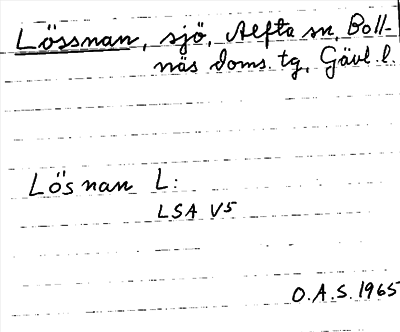 Lössnan, sjö, Alfta sn, Boll-
näs doms. tg, Gävl. l.
Lösnan L:
LSA V5
O.A.S. 1965